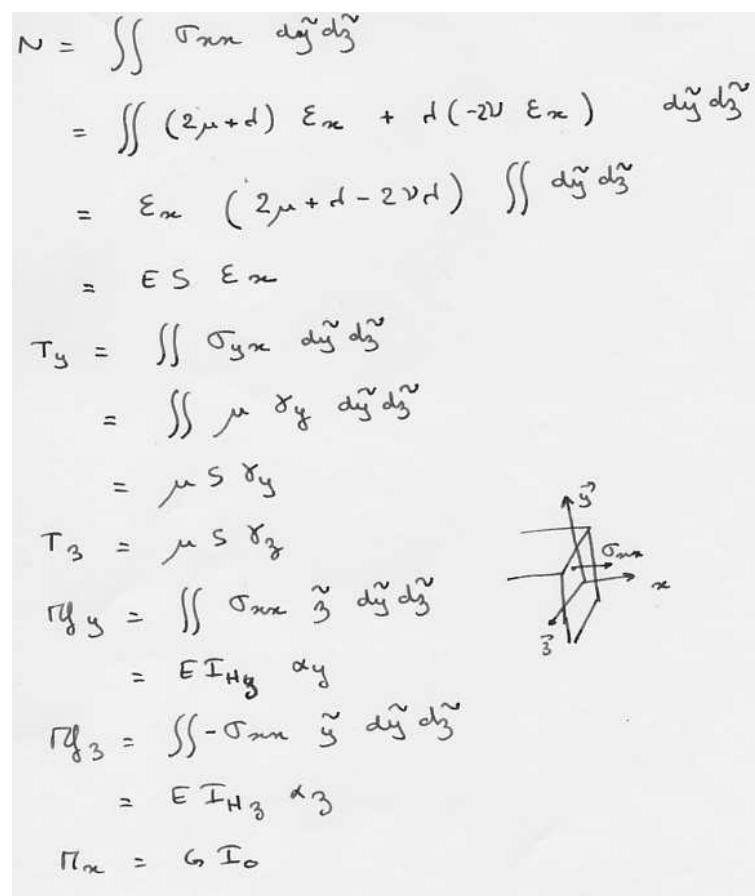 N = ∬ σxx dỹ dz̃
= ∬ (2μ+λ) εx + λ(-2ν εx) dỹ dz̃
= εx (2μ+λ-2νλ) ∬ dỹ dz̃
= E S εx
Ty = ∬ σyx dỹ dz̃
= ∬ μ γy dỹ dz̃
= μ S γy
Tz = μ S γz
Mfy = ∬ σxx z̃ dỹ dz̃
= E IHy αy
Mfz = ∬ -σxx ỹ dỹ dz̃
= E IHz αz
Mx = G I0
y⃗
σxx
x
z⃗